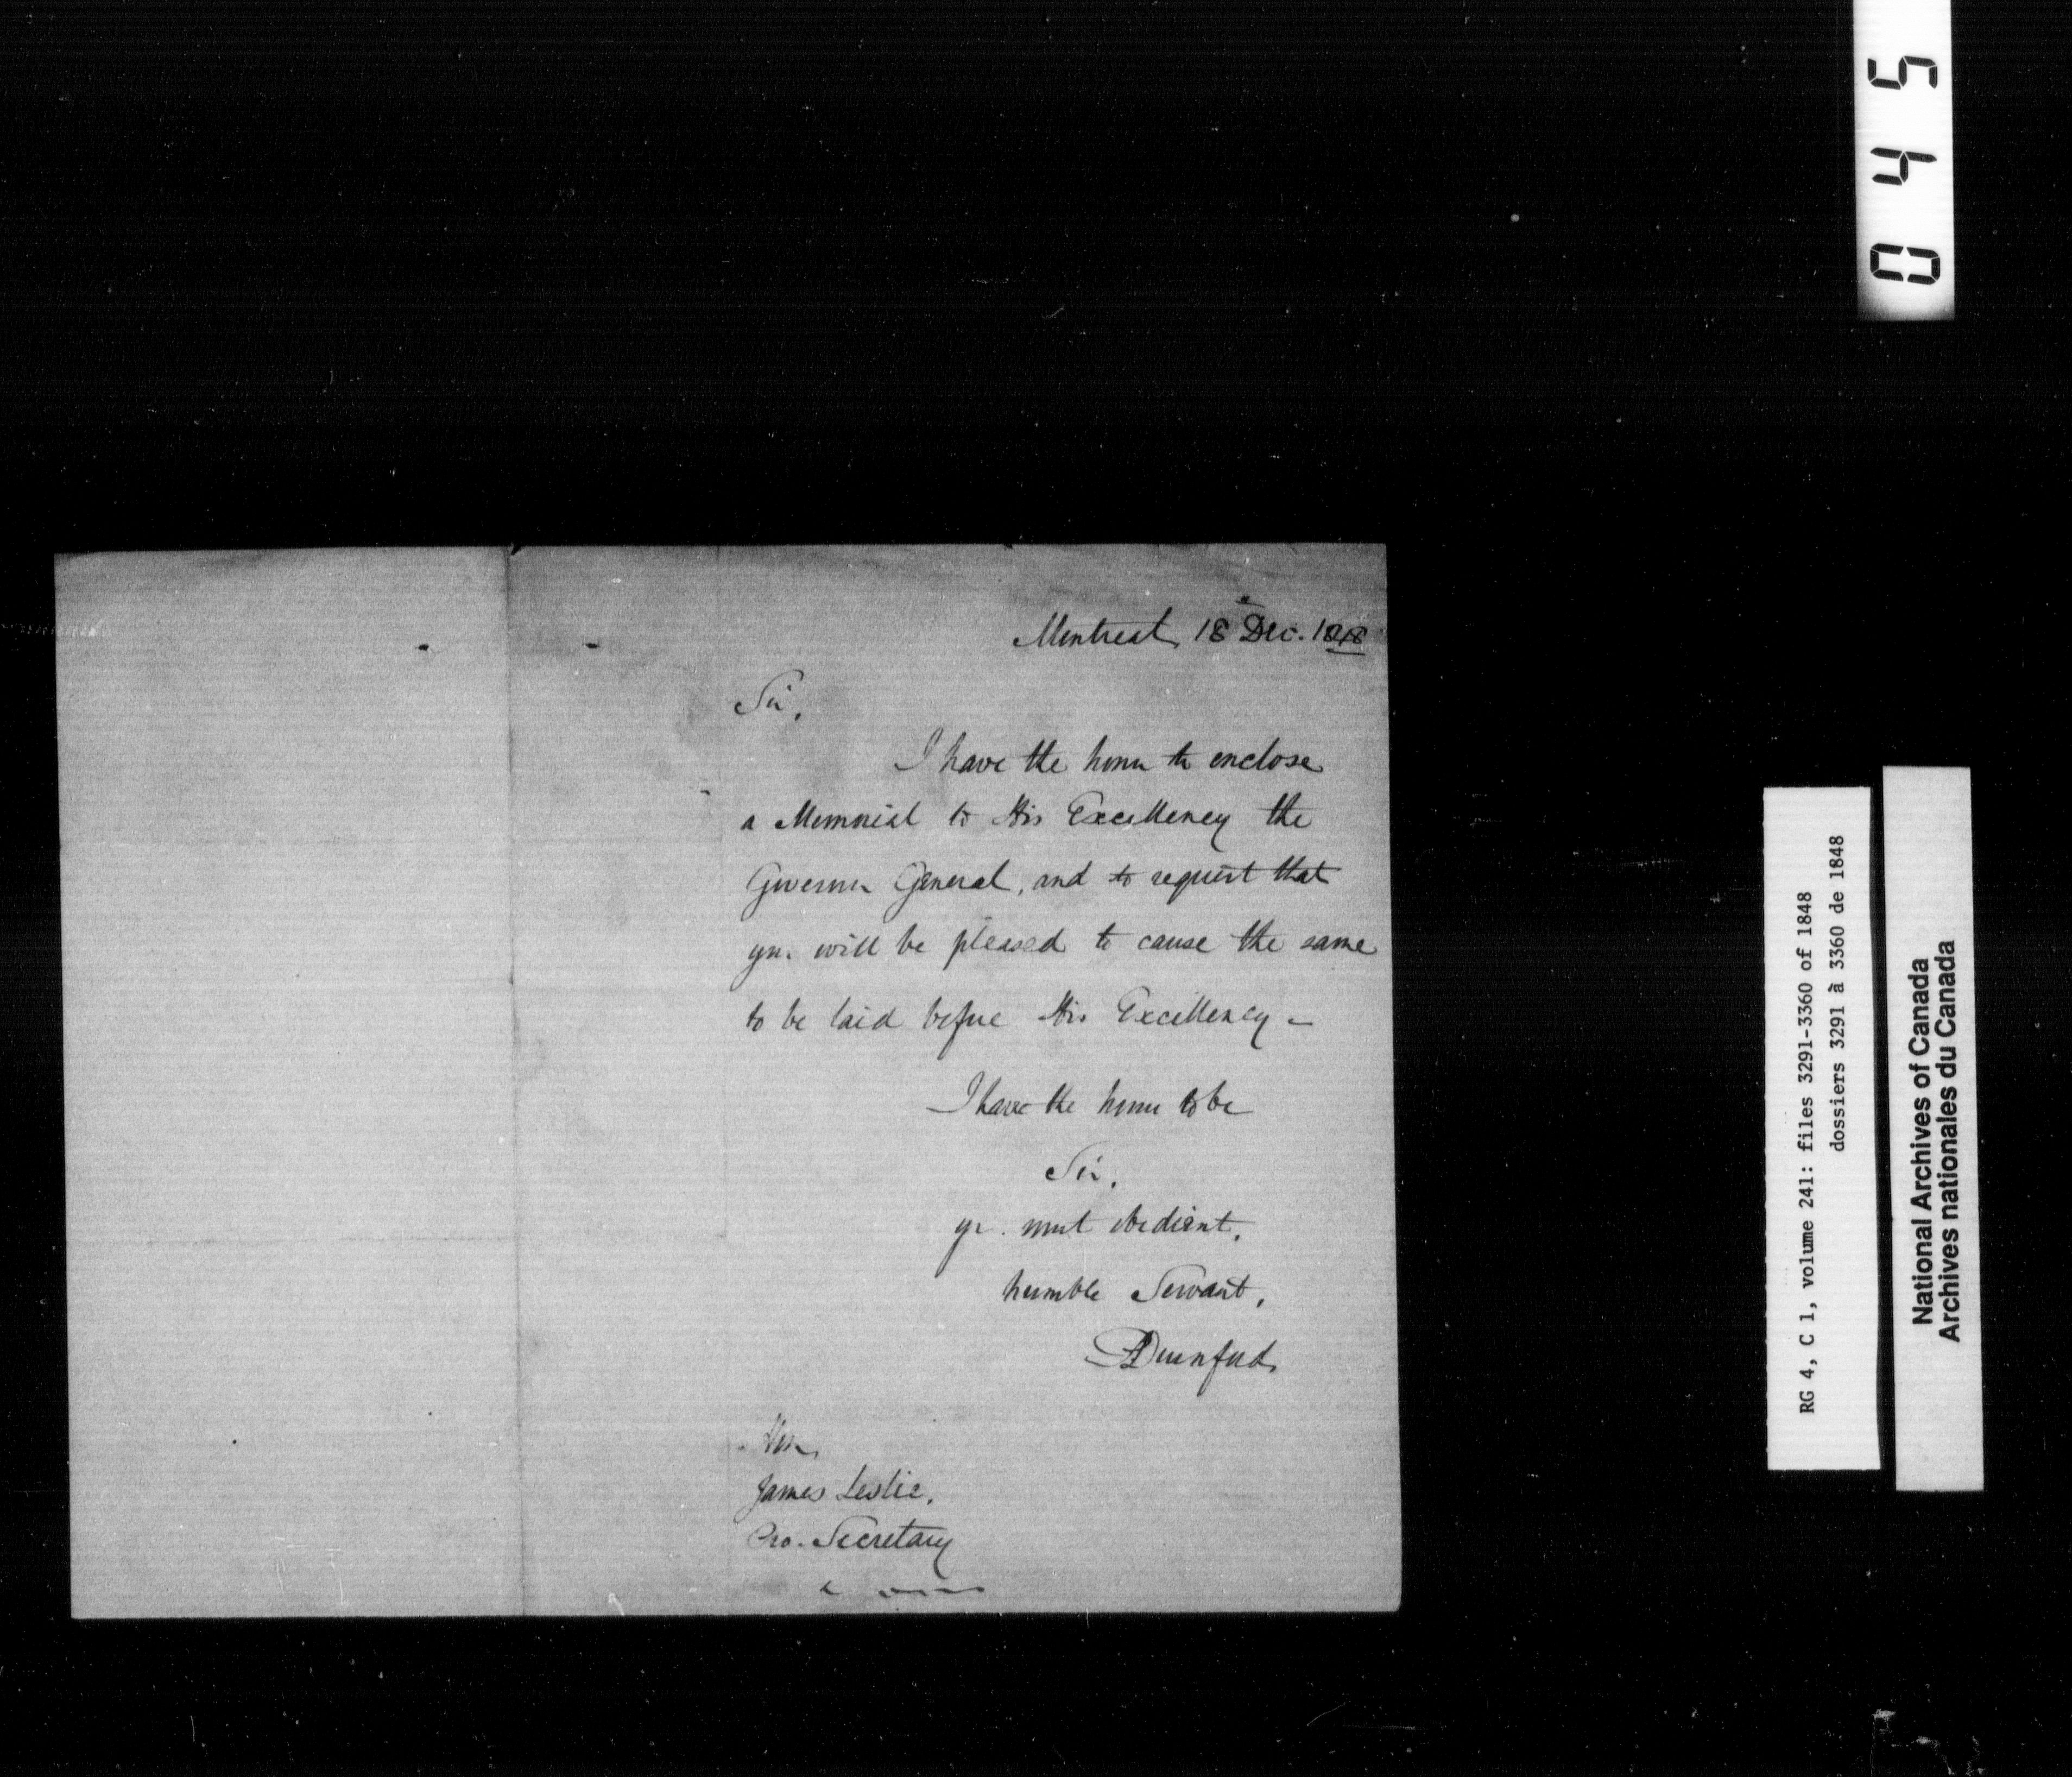 045
Montreal, 18 Dec. 1848
Sir,
I have the honor to enclose
a Memorial to His Excellency the
Governor General, and to request that
you will be pleased to cause the same
to be laid before His Excellency –
I have the honor to be
Sir,
yr. most obedient,
humble Servant,
Durnford
Hon
James Leslie,
Pro. Secretary
RG 4, C 1, volume 241: files 3291-3360 of 1848
dossiers 3291 à 3360 de 1848
National Archives of Canada
Archives nationales du Canada